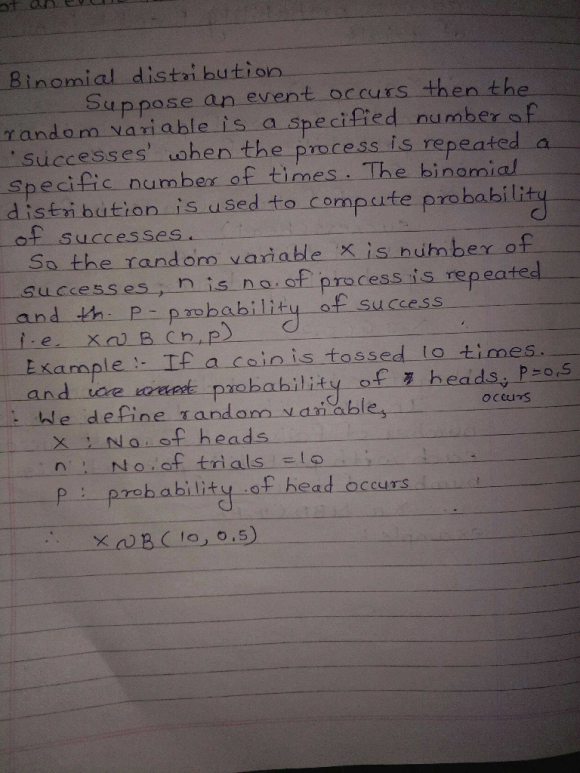 of an event
Binomial distribution
Suppose an event occurs then the
random variable is a specified number of
'successes' when the process is repeated a
specific number of times. The binomial
distribution is used to compute probability
of successes.
So the random variable X is number of
successes, n is no. of process is repeated
and th. P - probability of success
i.e. X ~ B (n, p)
Example :- If a coin is tossed 10 times.
and probability of heads, P=0.5
occurs
: We define random variable,
X : No. of heads
n : No. of trials = 10
P : probability of head occurs
∴ X ~ B (10, 0.5)